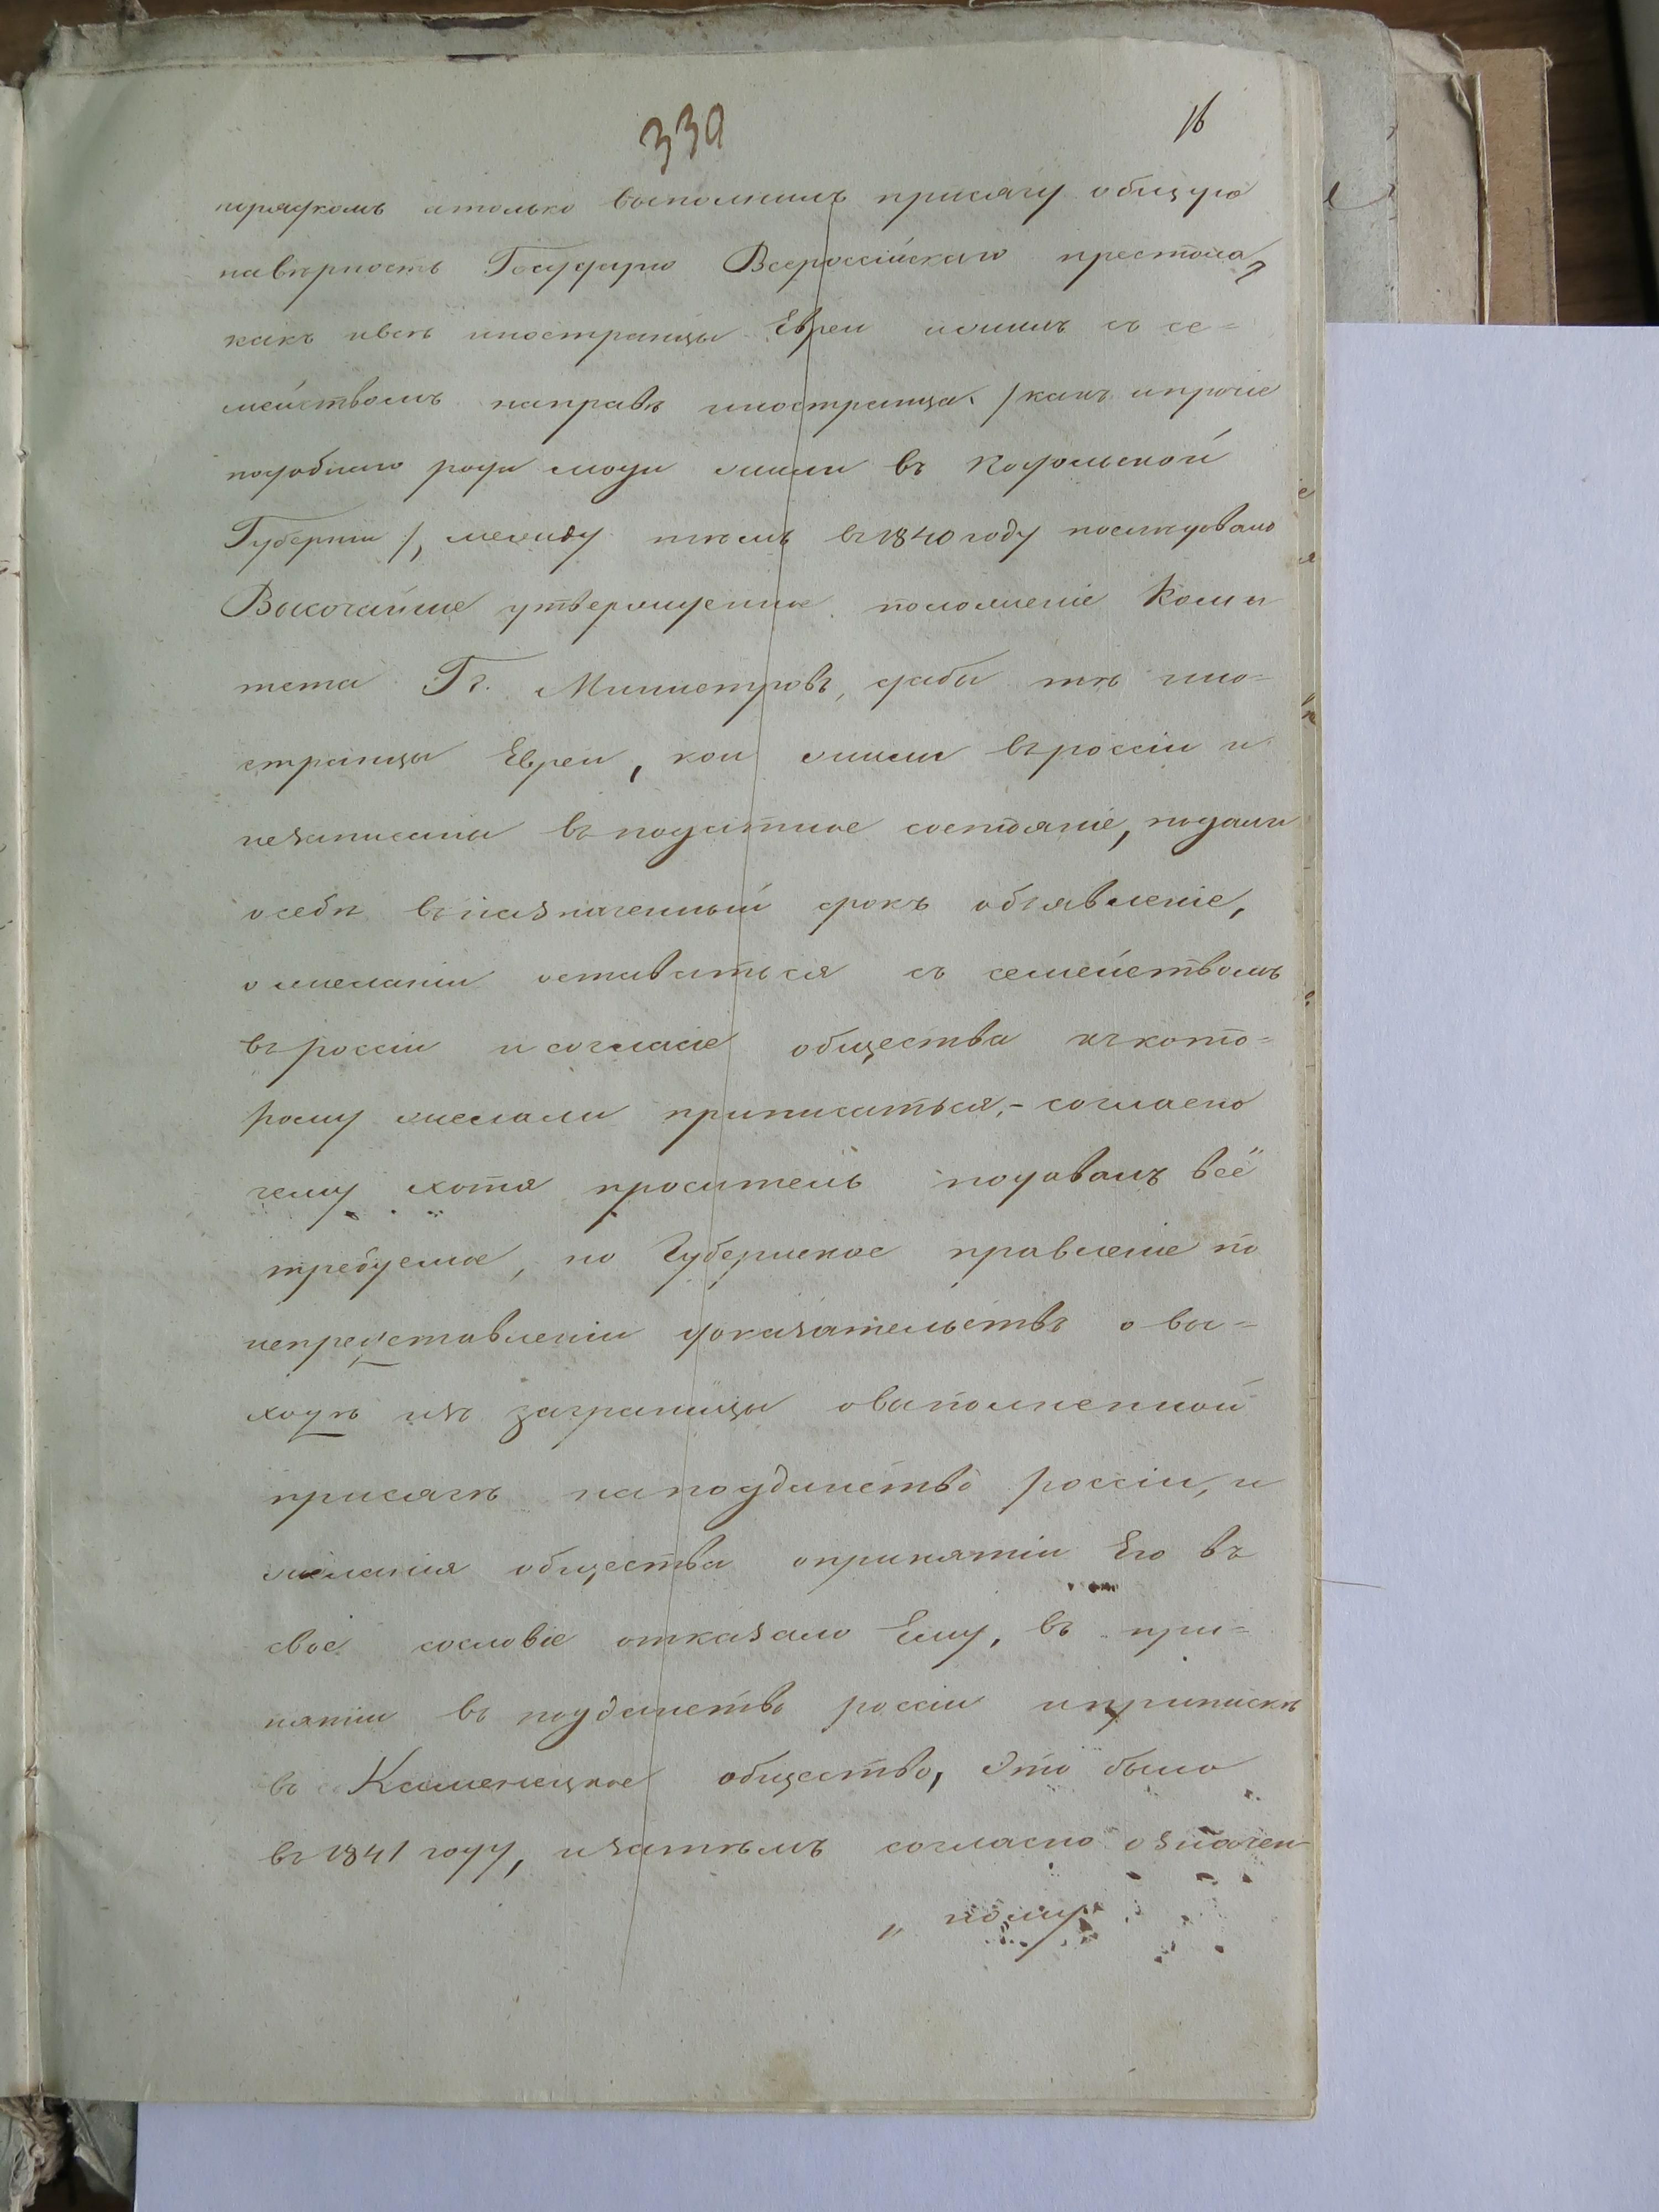 339
16
порядкомъ атолько выполнилъ присягу общую
навѣрность Государю Всероссійскаго престола,
какъ ивсѣ иностранцы Евреи ижилъ съ се=
мействомъ направѣ иностранца. /какъ ипрочіе
подобнаго рода люди жили въ Кодольской
Губерніи/, между тѣмъ въ 1840 году послѣдовало
Высочайше утвержденное положеніе Коми
тета Гг. Министровъ, дабы тѣ ино=
странцы Евреи, кои жили въроссіи и
незаписаны въ податное состояніе, подали
осебѣ въназначенный срокъ объявленіе,
ожеланіи оставаться съ семействомъ
въроссіи и согласіе общества къкото=
рому желали приписаться,- согласно
чему хотя проситель подавалъ всё
требуемое, но Губернское правленіе по
непредставленіи доказательствъ о вы=
ходѣ изъ заграницы овыполненной
присягѣ наподданство россіи, и
желанія общества опринятіи Его въ
свое сословіе отказало Ему, въ при=
нятіи въ подданство россіи иприпискѣ
въ Каменецкое общество, Это было
въ 1841 году, изатѣмъ согласно означен
„ ному